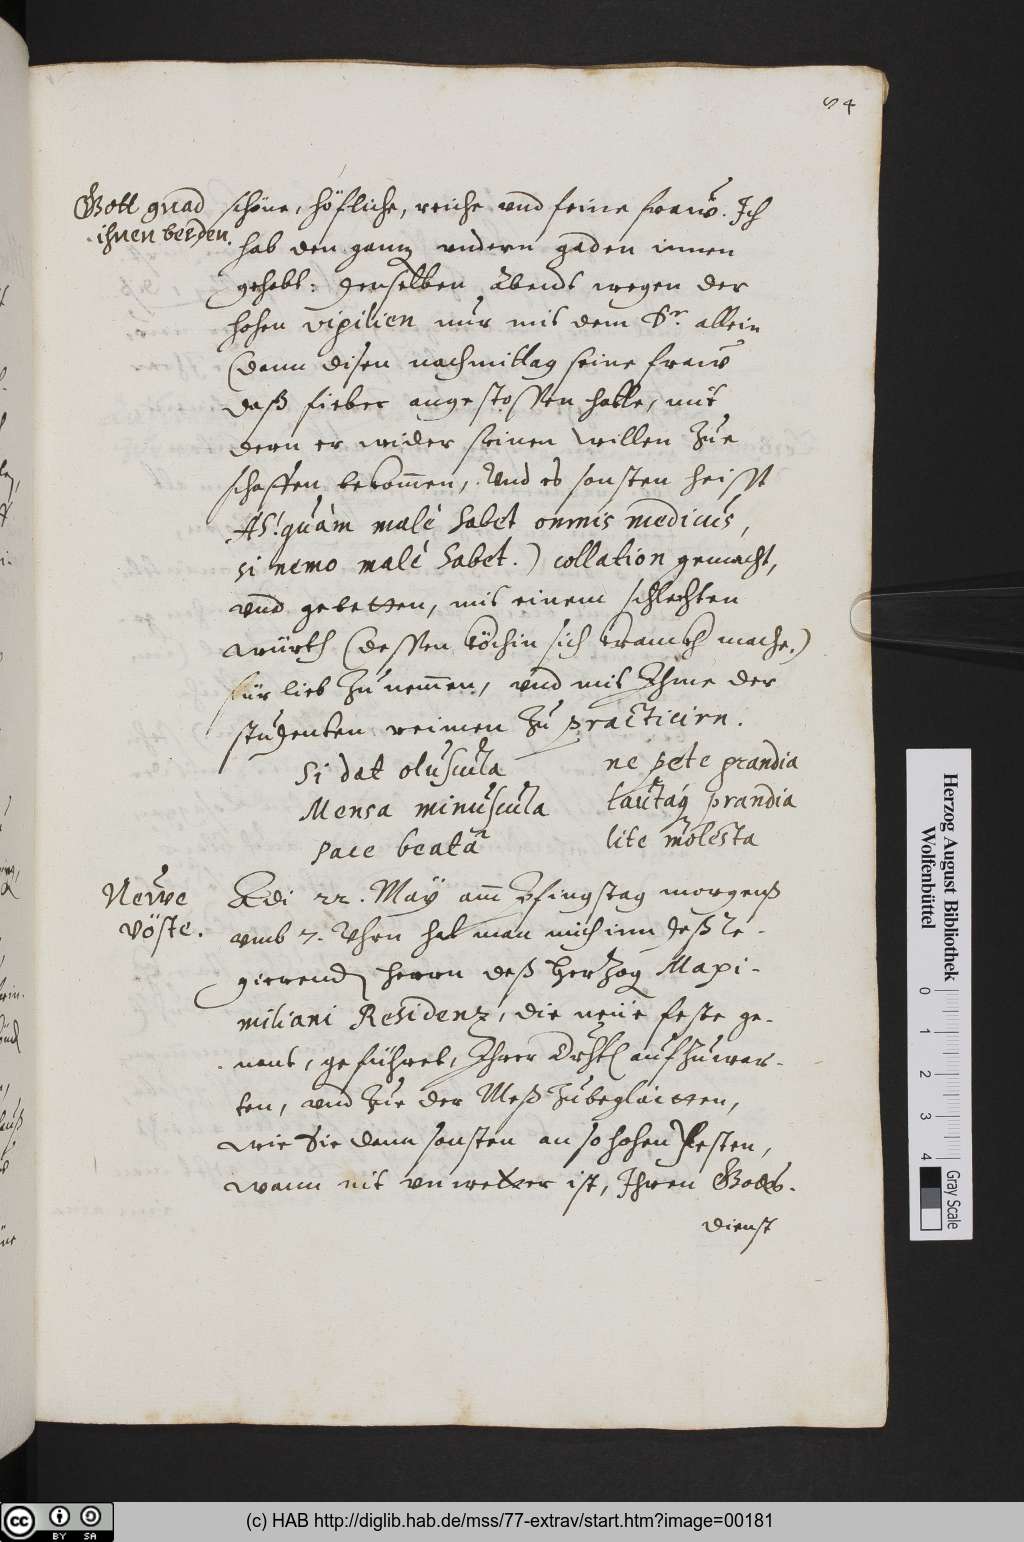 84
Gott gnad
ihnen beeden.
schöne, höfliche, reiche vnd feine fraw. Ich
hab den gantz vndern gaden innen
gehabt: denselben Abendt wegen der
hohen vigilien nur mit dem Hr. allein
(dann disen nachmittag seine fraw
daß fieber angestossen hatte, mit
dem er wider seinen willen zue
schaffen bekommen, Vnd es sonsten heisst
Ah! quàm malè habet omnis medicus,
si nemo malè habet.) collation gemacht,
vnd gebetten, mit einem schlechten
würth (dessen köchin sich kranckh mache.)
für lieb zu nemmen, vnd mit Ihme der
studenten reimen zu practiciren.
Si dat oluscula
Mensa minuscula
pace beatâ
ne pete grandia
lautaq́ prandia
lite molesta
Newe
vöste.
Adi 22. Maÿ am Pfingstag morgenß
vmb 7. Vhrn hat man mich inn deß re-
gierenden herrn deß Hertzog Maxi-
miliani Residenz, die neüe feste ge-
nant, geführet, Ihrer Drhtl aufzuwar-
ten, vnd zue der Meß zubeglaitten,
wie Sie dann sonsten an so hohen Festen,
wann nit vnwetter ist, Ihren Gotts-
dienst
Herzog August Bibliothek
Wolfenbüttel
0 1 2 3 4
Gray Scale
CC BY SA
(c) HAB http://diglib.hab.de/mss/77-extrav/start.htm?image=00181